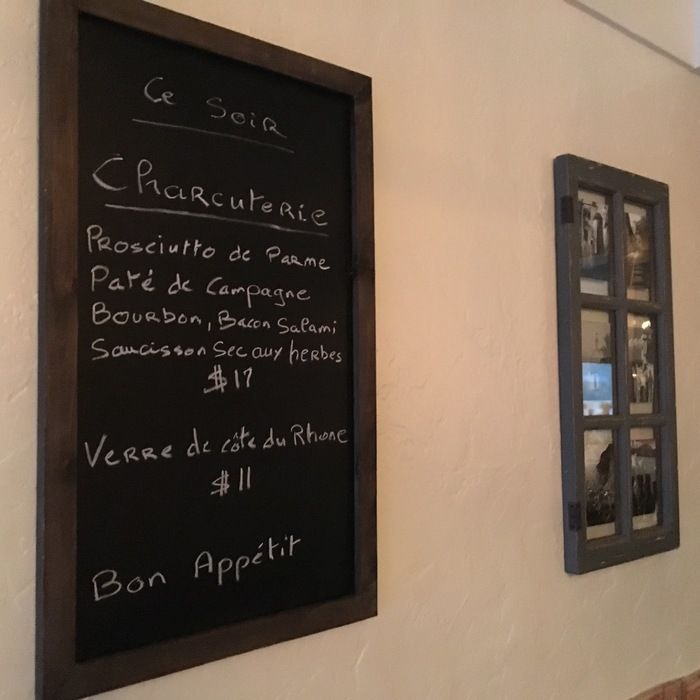 Ce Soir
Charcuterie
Prosciutto de Parme
Paté de Campagne
Bourbon, Bacon Salami
Saucisson Sec aux herbes
$17
Verre de côte du Rhone
$11
Bon Appétit